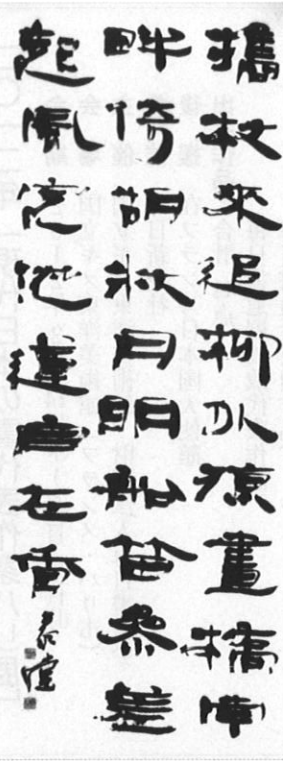 攜杖來追柳外涼畫橋南
畔倚胡牀月明船笛參差
起風定池蓮自在香